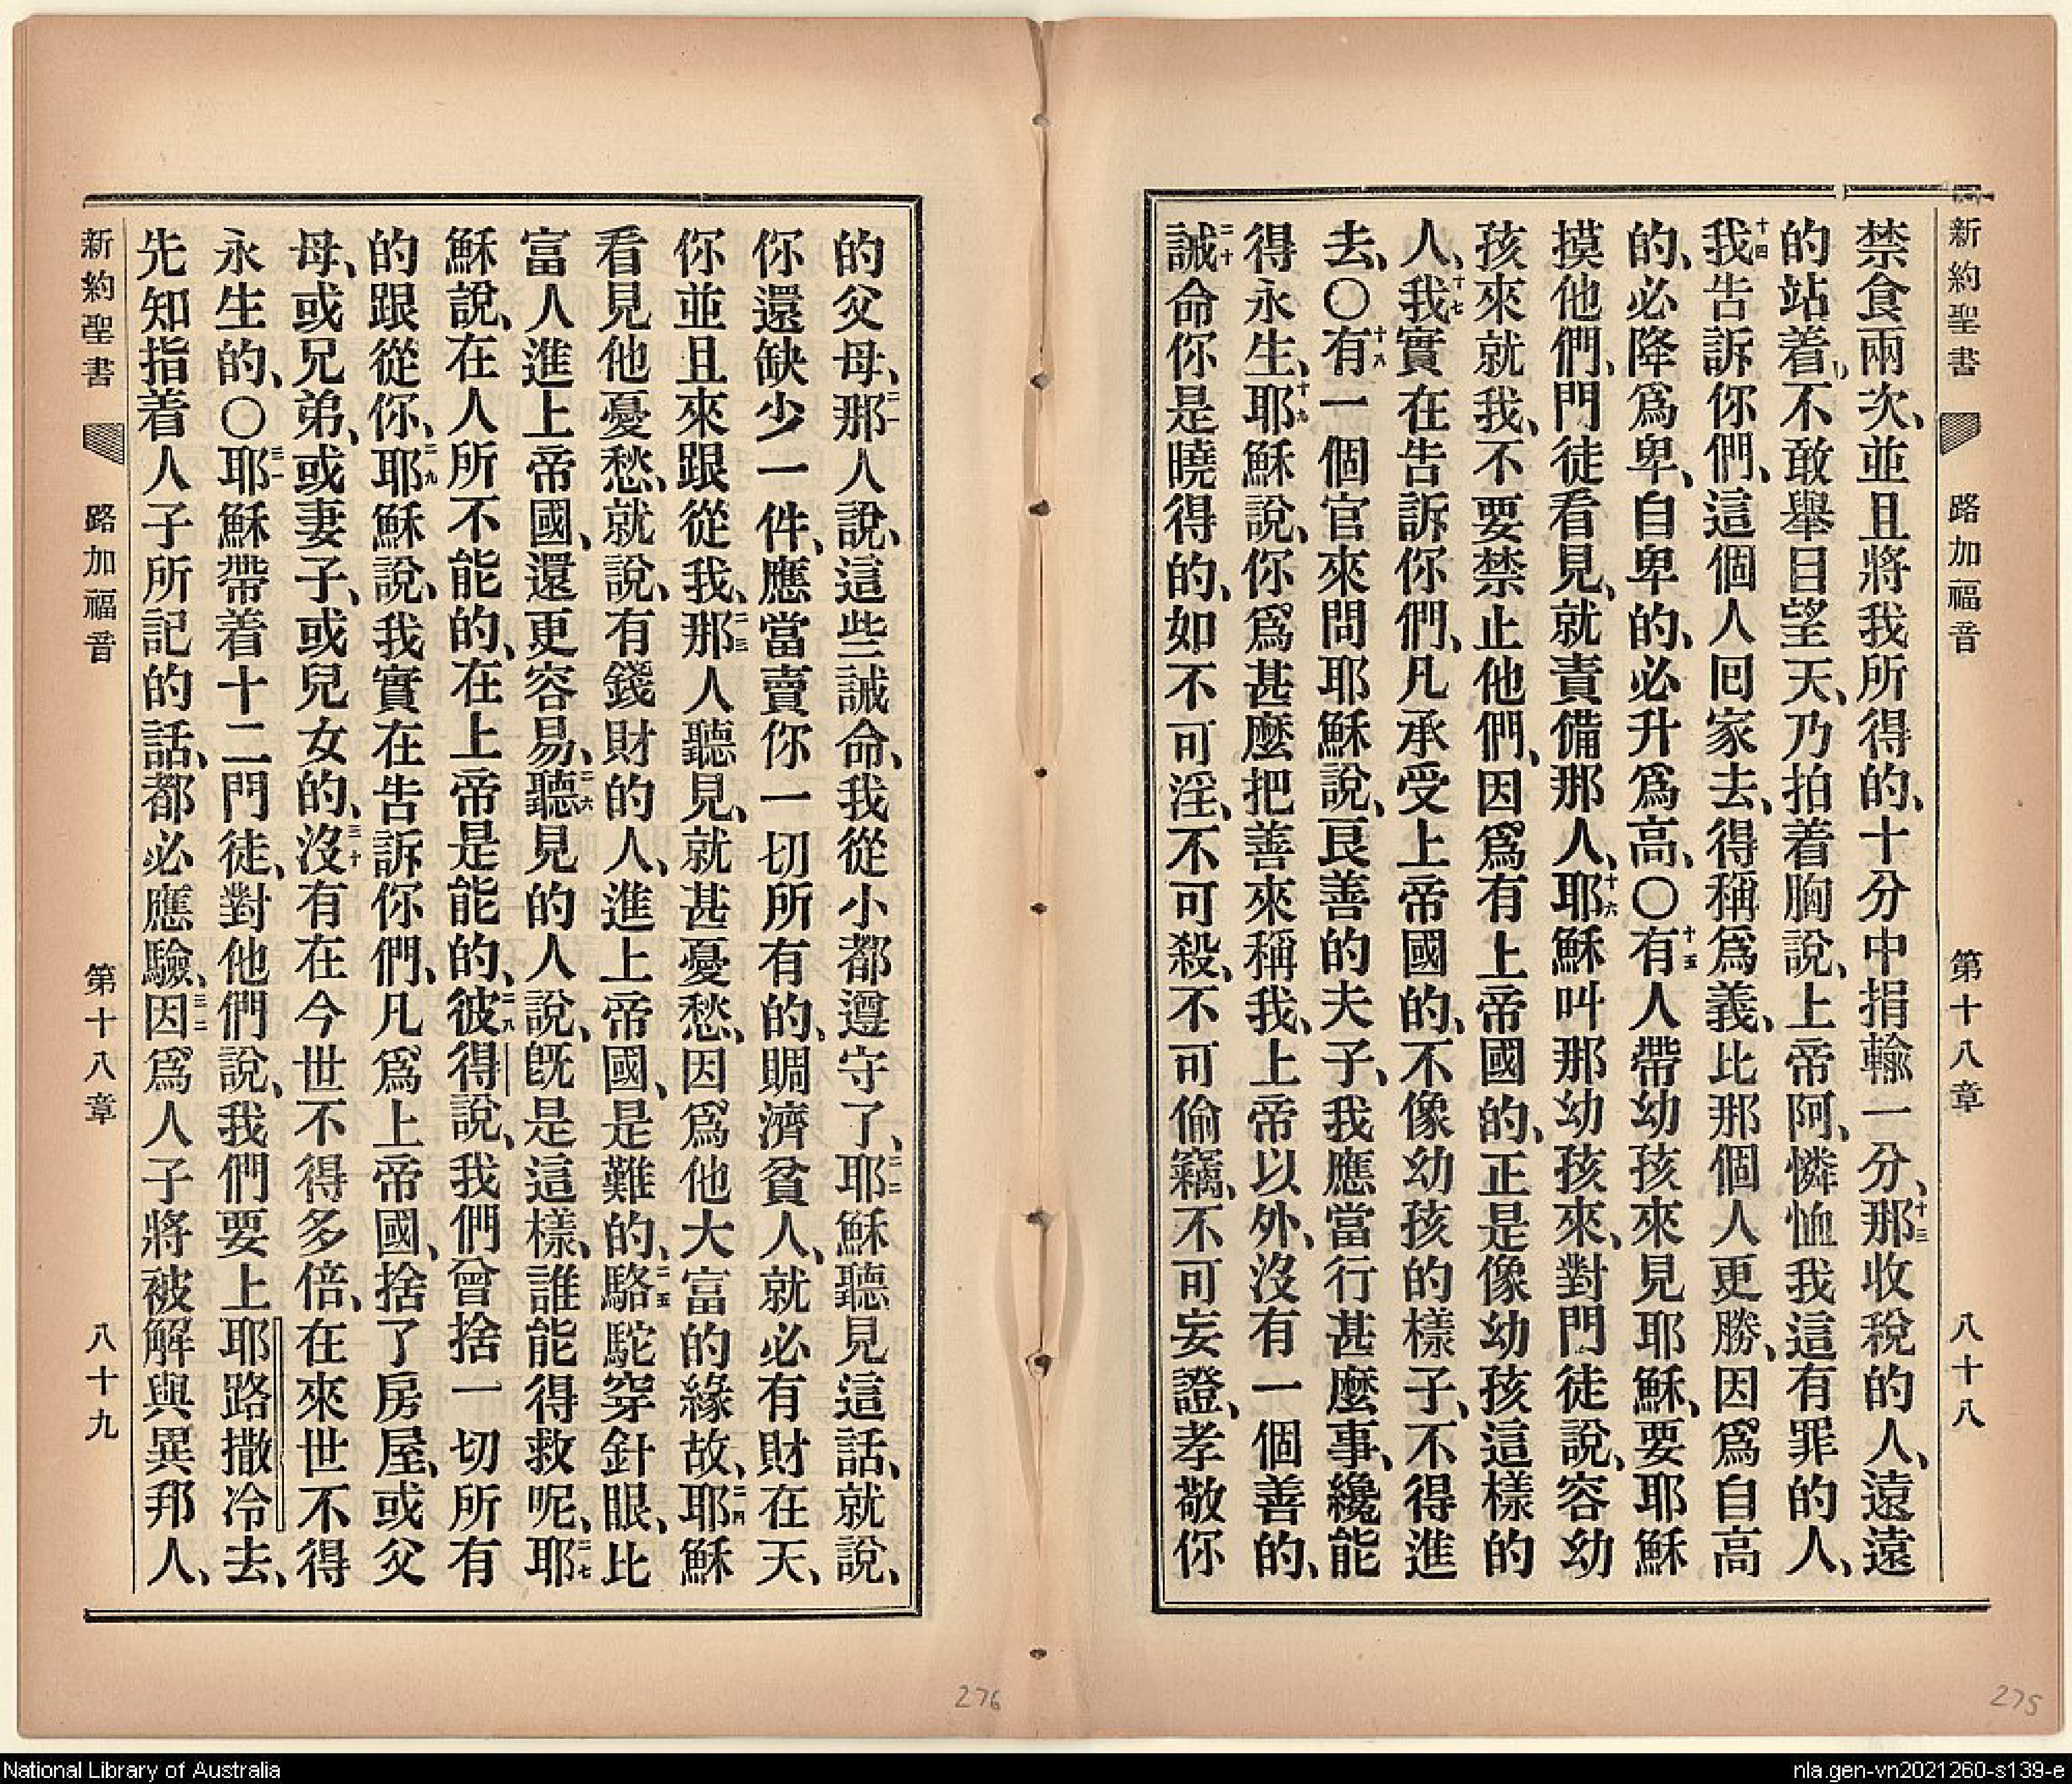 新約聖書 路加福音 第十八章 八十八
禁食兩次、並且將我所得的、十分中捐輸一分、十三那收稅的人、遠遠
的站着、不敢舉目望天、乃拍着胸說、上帝阿、憐恤我這有罪的人、
十四我告訴你們、這個人囘家去、得稱爲義、比那個人更勝、因爲自高
的、必降爲卑、自卑的、必升爲高、〇十五有人帶幼孩來見耶穌、要耶穌
摸他們、門徒看見、就責備那人、十六耶穌叫那幼孩來、對門徒說、容幼
孩來就我、不要禁止他們、因爲有上帝國的、正是像幼孩這樣的
人、十七我實在告訴你們、凡承受上帝國的、不像幼孩的樣子、不得進
去、〇十八有一個官來問耶穌說、良善的夫子、我應當行甚麼事、纔能
得永生、十九耶穌說、你爲甚麼把善來稱我、上帝以外、沒有一個善的、
二十誡命你是曉得的、如不可淫、不可殺、不可偷竊、不可妄證、孝敬你
的父母、二一那人說、這些誡命、我從小都遵守了、二二耶穌聽見這話、就說、
你還缺少一件、應當賣你一切所有的、賙濟貧人、就必有財在天、
你並且來跟從我、二三那人聽見、就甚憂愁、因爲他大富的緣故、二四耶穌
看見他憂愁、就說、有錢財的人、進上帝國、是難的、二五駱駝穿針眼、比
富人進上帝國、還更容易、二六聽見的人說、旣是這樣、誰能得救呢、二七耶
穌說、在人所不能的、在上帝是能的、二八彼得說、我們曾捨一切所有
的跟從你、二九耶穌說、我實在告訴你們、凡爲上帝國、捨了房屋、或父
母、或兄弟、或妻子、或兒女的、三十沒有在今世不得多倍、在來世不得
永生的、〇三一耶穌帶着十二門徒、對他們說、我們要上耶路撒冷去、
先知指着人子所記的話、都必應驗、三二因爲人子將被解與異邦人、
新約聖書 路加福音 第十八章 八十九
276
275
National Library of Australia
nla.gen-vn2021260-s139-e